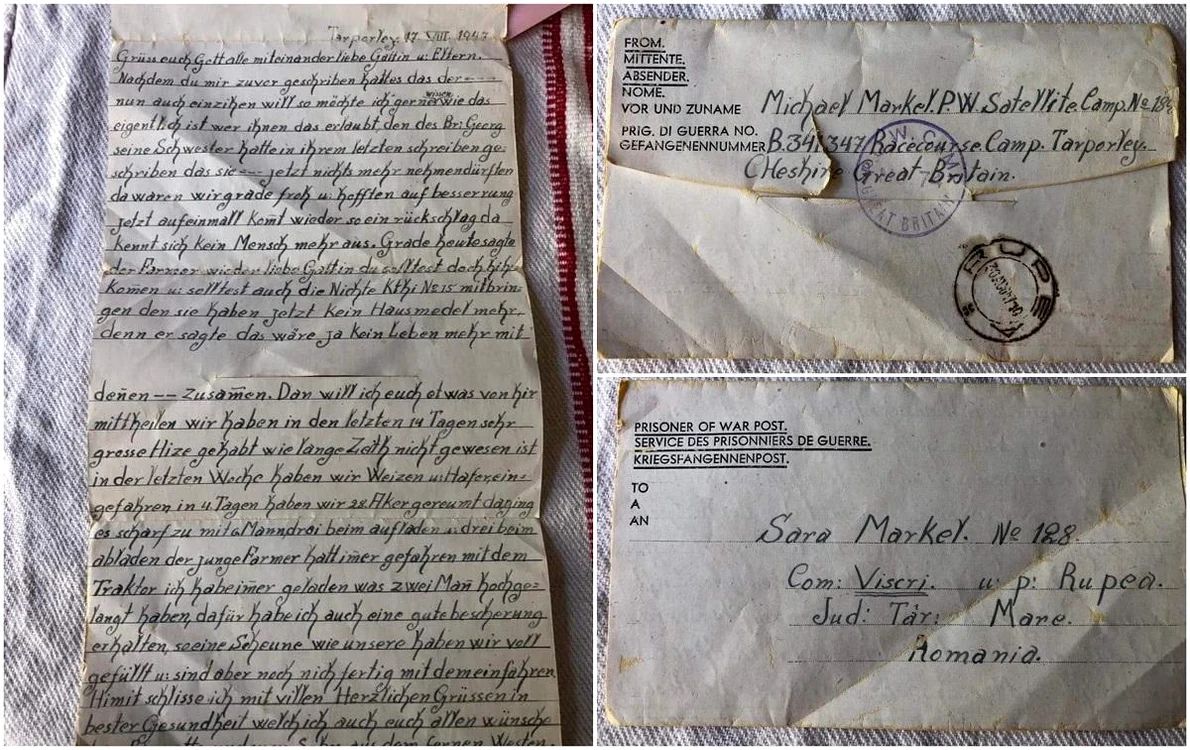 Tarporley 17. VIII. 1947
Grüss euch Gott alle miteinander liebe Gattin u: Eltern.
Nachdem du mir zuvor geschriben hattes das der ----
nun auch einzihen will so möchte ich gerne wissen wie das
eigentlich ist wer ihnen das erlaubt, den des Br: Georg
seine Schwester hatte in ihrem letzten schreiben ge:
schriben das sie --- jetzt nichts mehr nehmen dürften
da waren wir grade froh u: hofften auf besserrung
jetzt aufeinmall komt wieder so ein rückschlag da
kennt sich kein Mensch mehr aus. Grade heute sagte
der Farmer wieder liebe Gattin du solltest doch hihr
komen u: solltest auch die Nichte Kthi No 15 mitbrin:
gen den sie haben jetzt kein Hausmedel mehr,
denn er sagte das wäre ja kein Leben mehr mit
denen --- zusamen. Dan will ich euch etwas von hir
mittheilen wir haben in den letzten 14 Tagen sehr
grosse Hize gehabt wie lange Zeith nicht gewesen ist
in der letzten Woche haben wir Weizen u: Hafer ein:
gefahren in 4 Tagen haben wir 28 Aker gereumt da ging
es scharf zu mit 6 Mann drei beim aufladen u: drei beim
abladen der junge Farmer hatt imer gefahren mit dem
Traktor ich habe imer geladen was zwei Man hochge:
langt haben, dafür habe ich auch eine gute bescherung
erhalten, so eine Scheune wie unsere haben wir voll
gefüllt u: sind aber noch nich fertig mit dem einfahren
Himit schlisse ich mit villen Herzlichen Grüssen in
bester Gesundheit welch ich auch euch allen wünsche
aus dem fernen Westen.
FROM.
MITTENTE.
ABSENDER.
NOME.
VOR UND ZUNAME Michael Markel. P.W. Satellite. Camp. No
PRIG. DI GUERRA NO.
GEFANGENENNUMMER B.341347 Racecourse. Camp. Tarporley.
CHeshire Great Britain.
P.W. CAMP
GREAT BRITAIN
RUPEA
PRISONER OF WAR POST.
SERVICE DES PRISONNIERS DE GUERRE.
KRIEGSFANGENNENPOST.
TO
A
AN
Sara Markel. No 128.
Com: Viscri. u: p: Rupea.
Jud: Târ: Mare.
Romania.